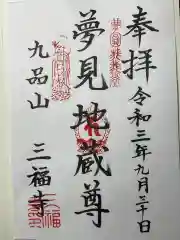 奉拝
令和三年九月三十日
夢見地蔵尊
九品山
三福寺